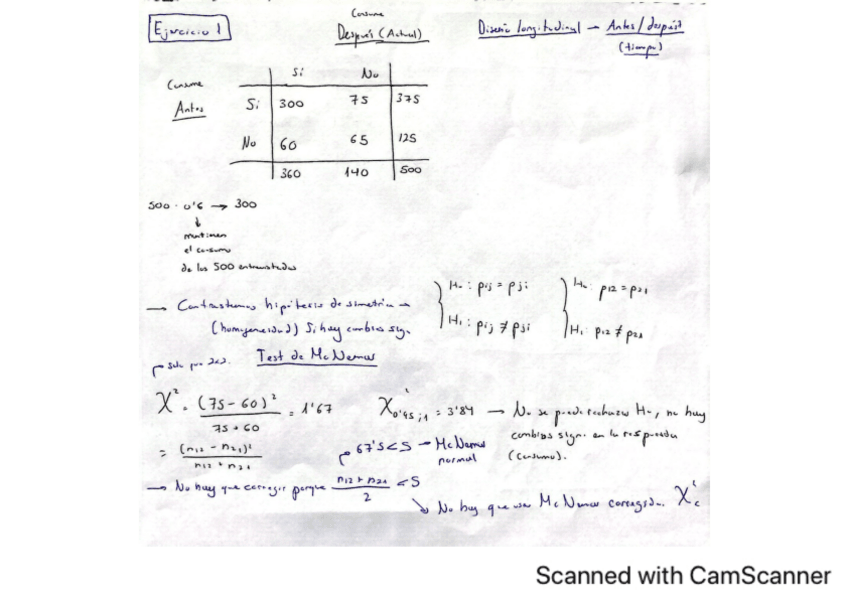 Ejercicio 1
Consume
Después (Actual)
Diseño longitudinal — Antes/después
(tiempo)
Si No
Consume
Antes
Si 300 75 375
No 60 65 125
360 140 500
500 · 0'6 → 300
↓
mantienen
el consumo
de los 500 entrevistados
→ Contrastamos hipótesis de simetría →
(homogeneidad) Si hay cambios sign.
H₀ : pij = pji
H₁ : pij ≠ pji
H₀ : p12 = p21
H₁ : p12 ≠ p21
Solo para 2x2. Test de McNemar
X² = (75 - 60)² / 75 + 60 = 1'67
X²0'95;1 = 3'84 → No se puede rechazar H₀, no hay
cambios sign. en la respuesta
(consumo).
= (n12 - n21)² / n12 + n21
67'5 < 5 → McNemar
normal
→ No hay que corregir porque n12 + n21 / 2 < 5
↘ No hay que usar McNemar corregido. X²c
Scanned with CamScanner